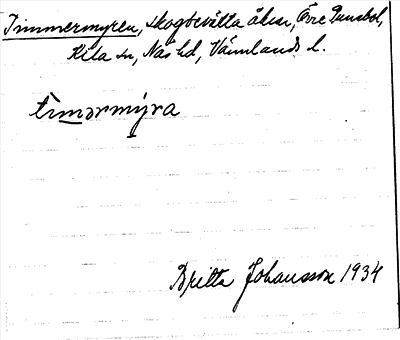 Timmermyren, skogbevätta åkrar, Övre Gunnebol,
Kila sn, Näs hd, Värmlands l.
timərmy̆ra
Britta Johansson 1934